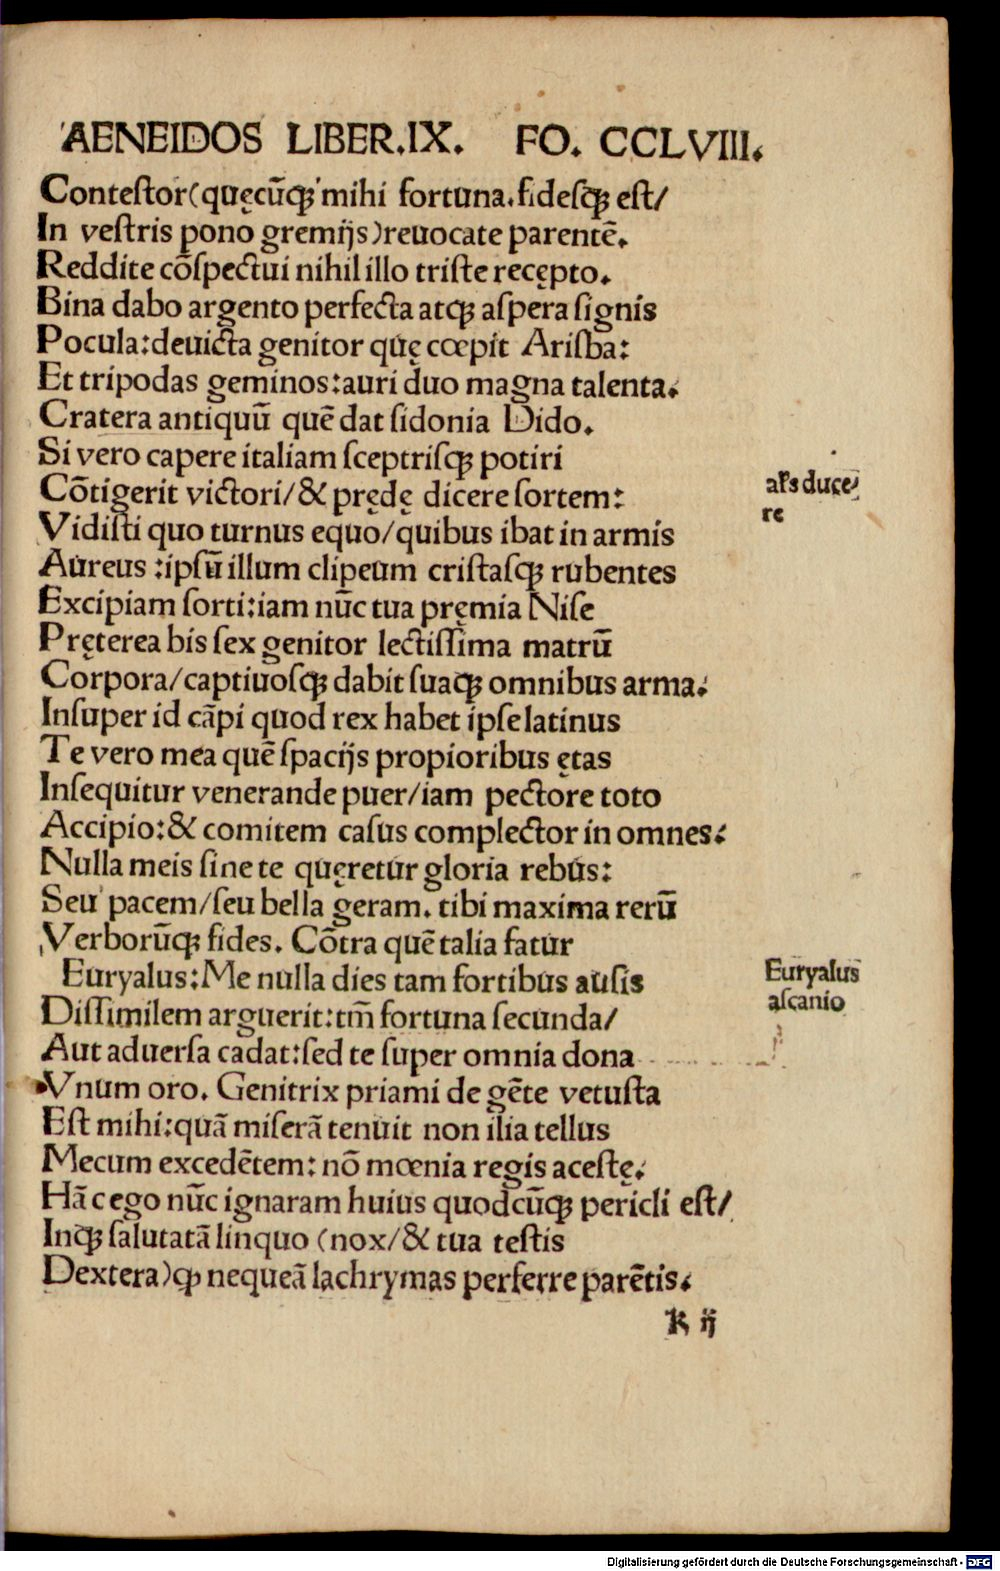 AENEIDOS LIBER.IX. FO. CCLVIII.
Conteſtor(quęcũqꝫ mihi fortuna.fideſqꝫ eſt/
In veſtris pono gremijs)reuocate parentẽ.
Reddite cõſpectui nihil illo triſte recępto.
Bina dabo argento perfecta atqꝫ aſpera ſignis
Pocula:deuicta genitor quę cœpit Ariſba:
Et tripodas geminos:auri duo magna talenta.
Cratera antiquũ quẽ dat ſidonia Dido.
Si vero capere italiam ſceptriſqꝫ potiri
Cõtigerit victori/& prędę dicere ſortem:
als ducere
Vidiſti quo turnus equo/quibus ibat in armis
Aureus :ipſũ illum clipeum criſtaſqꝫ rubentes
Excipiam ſorti:iam nũc tua pręmia Niſe
Pręterea bis ſex genitor lectiſſima matrũ
Corpora/captiuoſqꝫ dabit ſuaqꝫ omnibus arma.
Inſuper id cãpi quod rex habet ipſe latinus
Te vero mea quẽ ſpacijs propioribus ętas
Inſequitur venerande puer/iam pectore toto
Accipio:& comitem caſus complector in omnes.
Nulla meis ſine te quęretur gloria rebus:
Seu pacem/ſeu bella geram. tibi maxima rerũ
Verborũqꝫ fides. Cõtra quẽ talia fatur
Euryalus:Me nulla dies tam fortibus auſis
Euryalus
aſcanio
Diſſimilem arguerit:tm̃ fortuna ſecunda/
Aut aduerſa cadat:ſed te ſuper omnia dona
Vnum oro. Genitrix priami de gẽte vetuſta
Eſt mihi:quã miſerã tenuit non ilia tellus
Mecum excedẽtem: nõ mœnia regis aceſtę.
Hãc ego nũc ignaram huius quodcũqꝫ pericli eſt/
Inqꝫ ſalutatã linquo (nox/& tua teſtis
Dextera)ꝙ nequeã lachrymas perferre parẽtis.
K ij
Digitalisierung gefördert durch die Deutsche Forschungsgemeinschaft - DFG